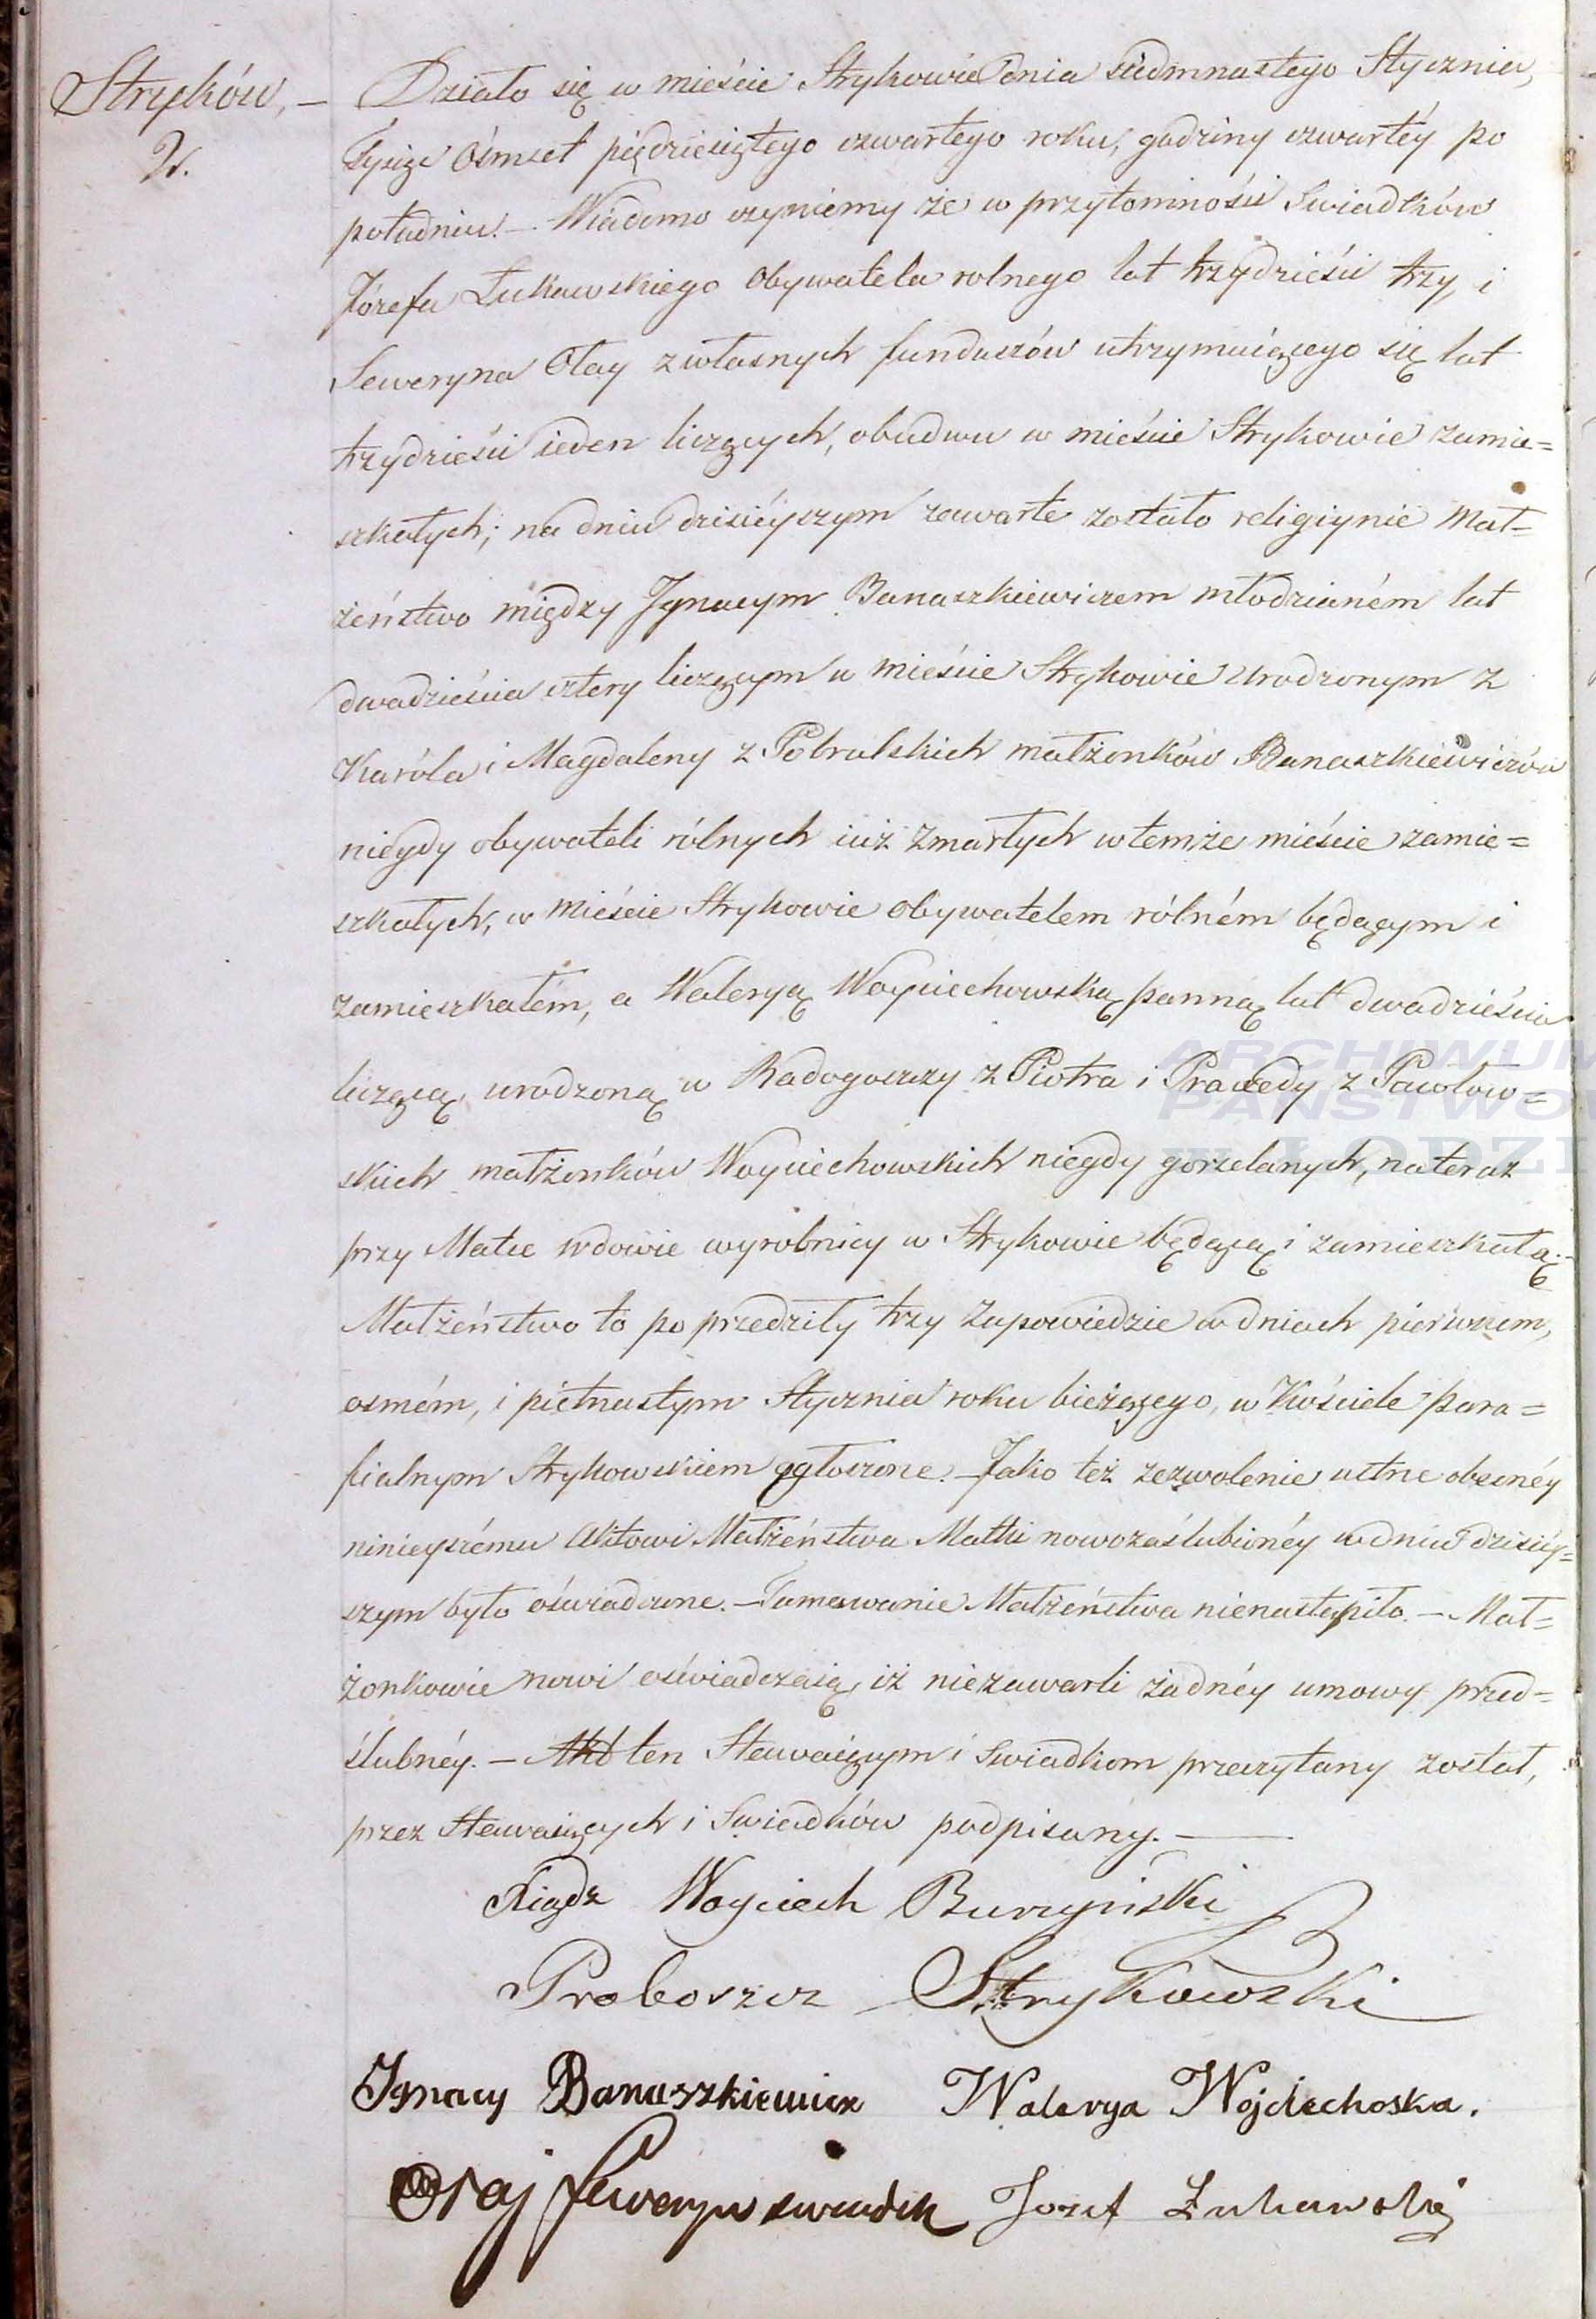 Stryków, –
2.
Działo się w mieście Strykowie dnia siedmnastego Stycznia,
Tysiąc Ośmset pięćdziesiątego czwartego roku, godziny czwartéy po
południu. – Wiadomo czyniemy że w przytomności Swiadków
Józefa Łukawskiego Obywatela rolnego lat trzydzieści trzy, i
Seweryna Otay z własnych funduszów utrzymuiącego się lat
trzydzieści ieden liczących, obudwu w mieście Strykowie zamie=
szkałych; na dniu dzisiéyszym zawarte zostało religiynie Mał=
żeństwo między Ignacym Banaszkiewiczem młodzianém lat
dwadzieścia cztery liczącym w mieście Strykowie urodzonym z
Karóla i Magdaleny z Pobralskich małżonków Banaszkiewiczów
niegdy obywateli rólnych iuż zmarłych w temże mieście zamie=
szkałych, w mieście Strykowie obywatelem rólném będącym i
zamieszkałém, a Waleryą Woyciechowską panną lat dwadzieścia
liczącą urodzoną w Radogoszczy z Piotra i Praxedy z Pawłow=
skich małżonków Woyciechowskich niegdy gorzelanych, nateraz
przy Matce wdowie wyrobnicy w Strykowie będącą i zamieszkałą. –
Małżeństwo to poprzedziły trzy Zapowiedzie w dniach pierwszem,
osmém, i piętnastym Stycznia roku bieżącego, w Kościele para=
fialnym Strykowskiem ogłoszone. – Jako też zezwolenie ustne obecnéy
ninieyszému Aktowi Małżeństwa Matki nowozaślubionéy w dniu dzisiéy=
szym było oświadczone. – Tamowanie Małżeństwa nienastąpiło. – Mał=
żonkowie nowi oświadczaią, iż niezawarli żadnéy umowy przed=
ślubnéy. – Akt ten Stawaiącym i Swiadkom przeczytany został,
przez Stawaiących i Swiadków podpisany. –
Xiądz Woyciech Burzyński
Proboszcz Strykowski
Ignacy Banaszkiewicz Walerya Wojciechoska.
Otaj Seweryn swiadek Jozef Łukawski
ARCHIWUM
PAŃSTWO
w ŁODZI